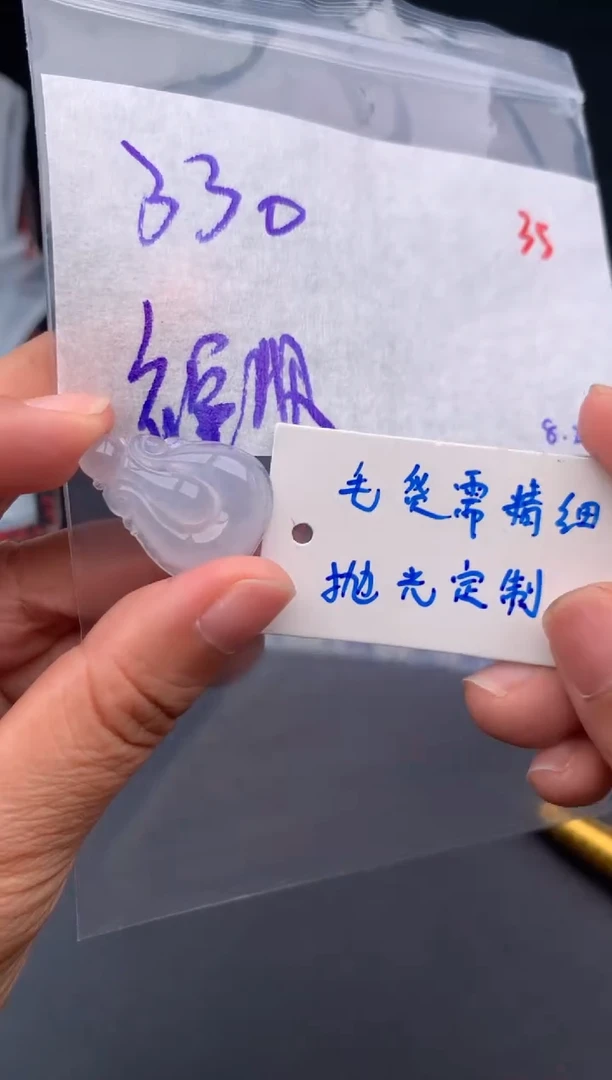 330
35
毛货需精细
抛光定制